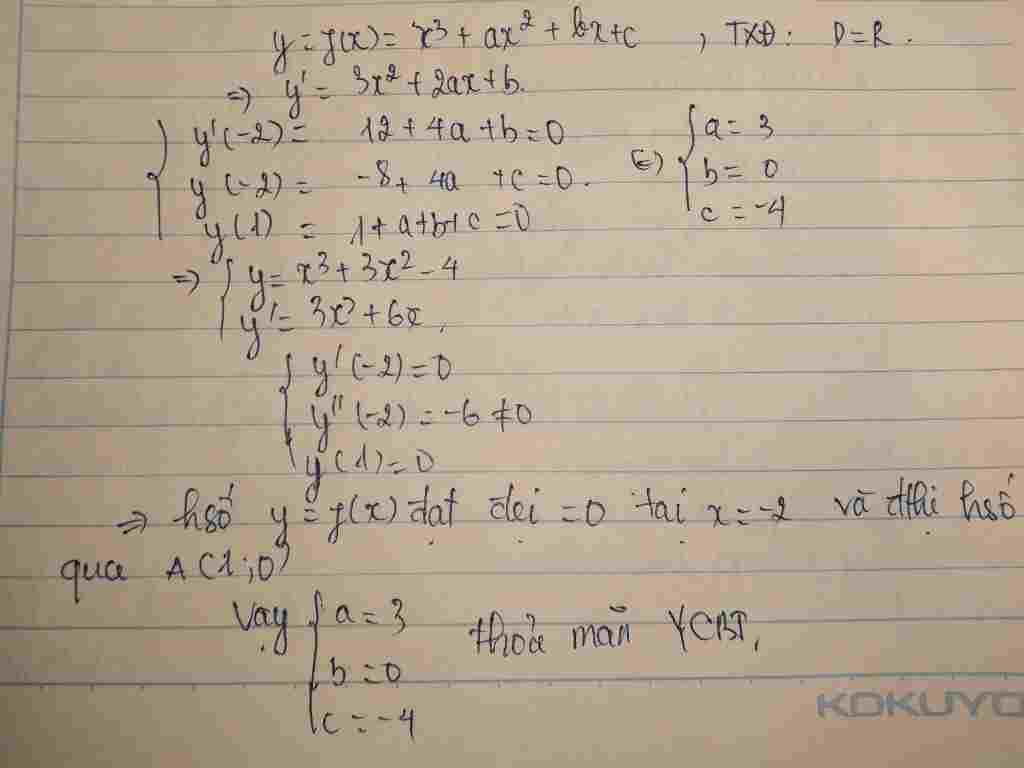 y = f(x) = x³ + ax² + bx + c , TXĐ: D = R.
⇒ y' = 3x² + 2ax + b.
y'(-2) = 12 + 4a + b = 0
y(-2) = -8 + 4a + c = 0.
y(1) = 1 + a + b + c = 0
(⇔) { a = 3
b = 0
c = -4
⇒ { y = x³ + 3x² - 4
y' = 3x² + 6x,
{ y'(-2) = 0
y''(-2) = -6 ≠ 0
y(1) = 0
⇒ hsố y = f(x) đạt đại = 0 tại x = -2 và đthị hsố
qua A(1;0)
Vậy { a = 3
b = 0
c = -4
thỏa mãn YCBT.
KOKUYO